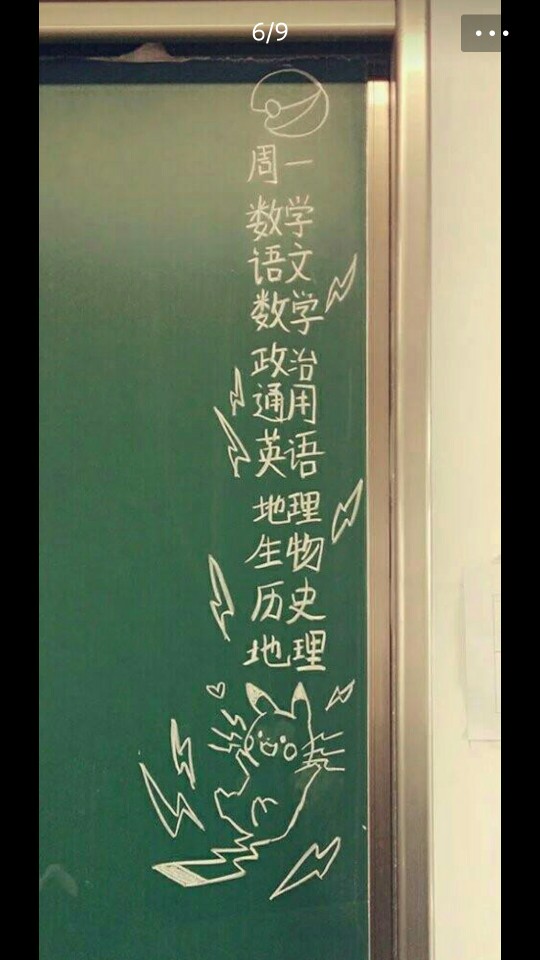 6/9
周一
数学
语文
数学
政治
通用
英语
地理
生物
历史
地理